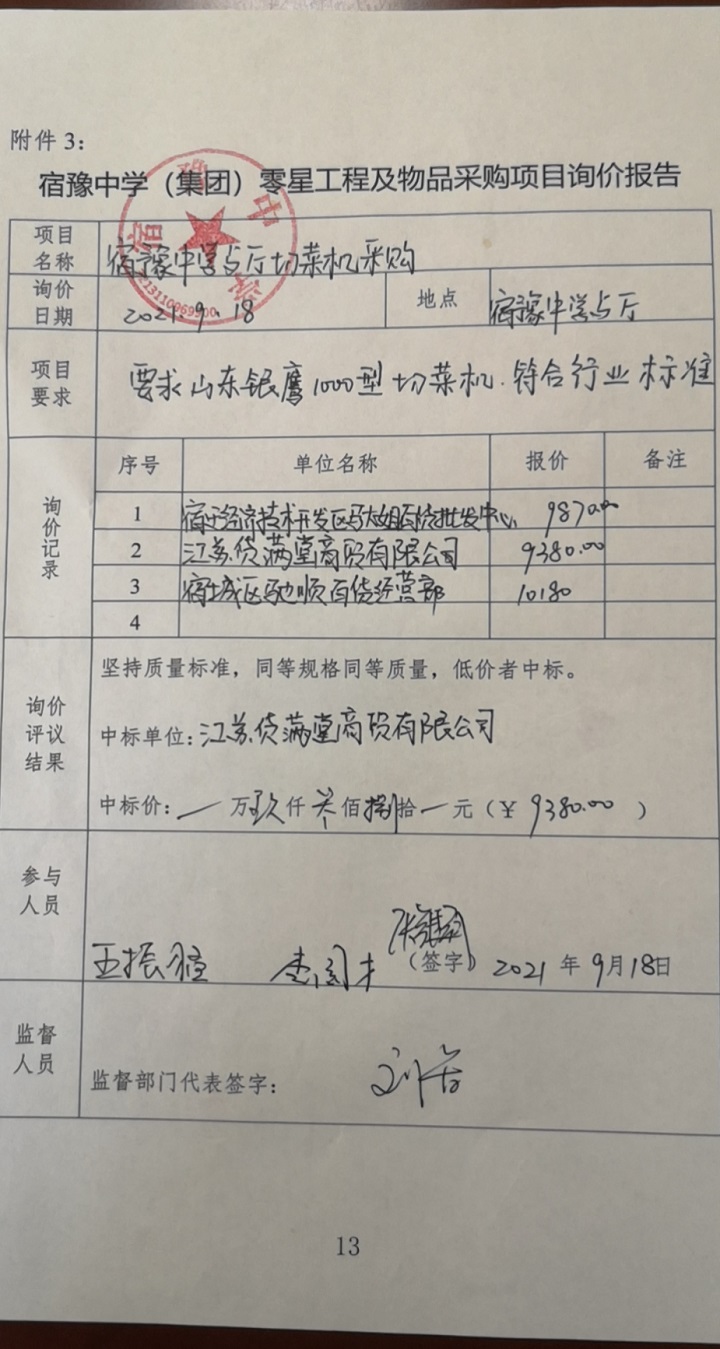 附件 3：
宿豫中学（集团）零星工程及物品采购项目询价报告
项目名称 宿豫中学占厅切菜机采购
询价日期 2021.9.18 地点 宿豫中学占厅
项目要求 要求山东银鹰1000型切菜机.符合行业标准
询价记录
序号 单位名称 报价 备注
1 经济技术开发区 百货批发中心 9870.00
2 江苏货满堂商贸有限公司 9380.00
3 宿城区驰顺百货经营部 10180
4
询价评议结果
坚持质量标准，同等规格同等质量，低价者中标。
中标单位：江苏货满堂商贸有限公司
中标价：一万玖仟叁佰捌拾一元（￥9380.00）
参与人员
王振
（签字）2021年9月18日
监督人员
监督部门代表签字：
13